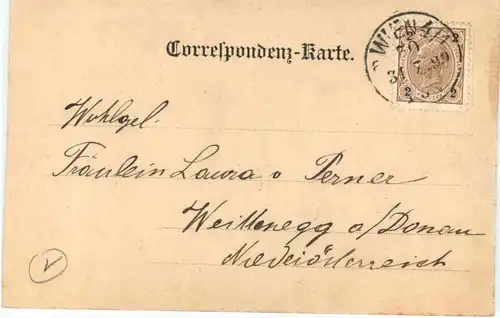 Correspondenz-Karte.
WIEN
2
2
Wohlgel.
Fräulein Laura v Perner
Weittenegg a/Donau
Niederösterreich
V